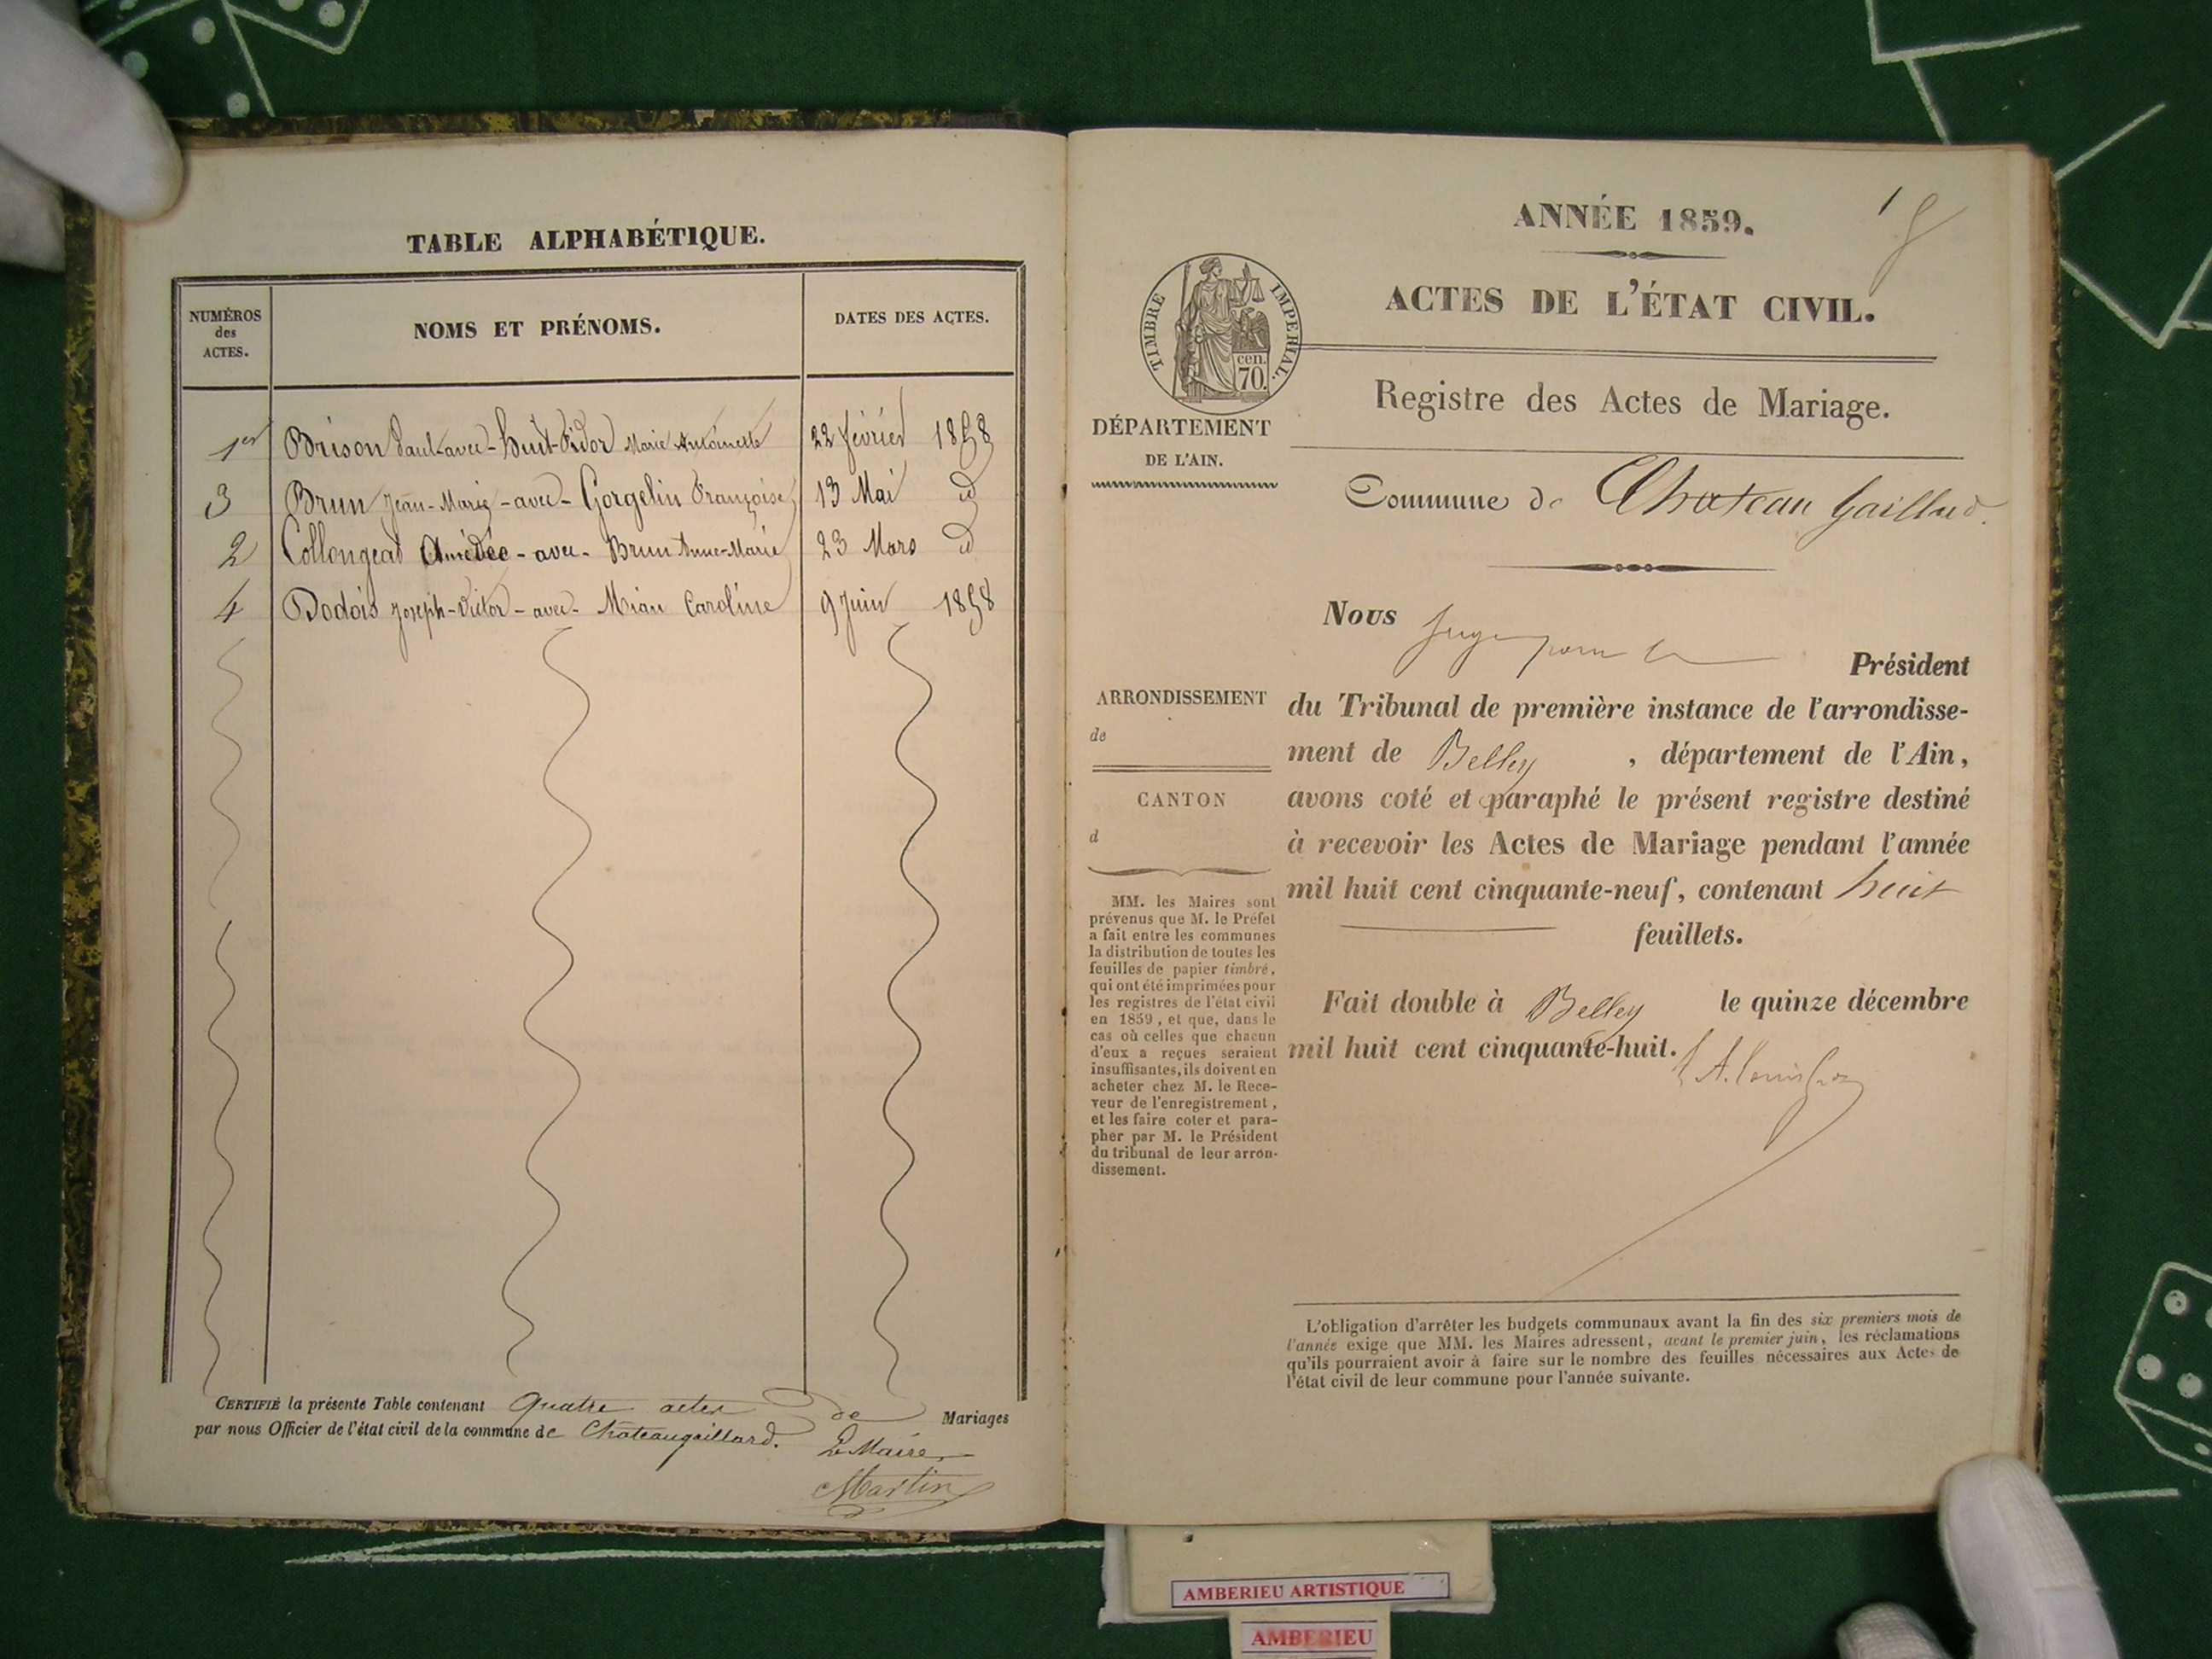 TABLE ALPHABÉTIQUE.
NUMÉROS
des
ACTES.
NOMS ET PRÉNOMS.
DATES DES ACTES.
1er Brison Paul-avec-Huit-Pidor Marie Antoinette 22 février 1858
3 Brun Jean-Marie-avec-Gorgelin Françoise 13 Mai id
2 Collongeat Amédée-avec-Brun Anne-Marie 23 Mars id
4 Dodois Joseph-Victor-avec-Mian Caroline 9 Juin 1858
CERTIFIÉ la présente Table contenant Quatre actes de Mariages
par nous Officier de l'état civil de la commune de Châteaugaillard.
Le Maire,
Martin
ANNÉE 1859.
1
ACTES DE L'ÉTAT CIVIL.
TIMBRE IMPERIAL.
cen.
70.
Registre des Actes de Mariage.
DÉPARTEMENT
DE L'AIN.
Commune de Chateau Gaillard.
Nous Juge pour le
Président
du Tribunal de première instance de l'arrondisse-
ment de Belley , département de l'Ain,
avons coté et paraphé le présent registre destiné
à recevoir les Actes de Mariage pendant l'année
mil huit cent cinquante-neuf, contenant huit
feuillets.
Fait double à Belley le quinze décembre
mil huit cent cinquante-huit.
ARRONDISSEMENT
de
CANTON
d
MM. les Maires sont
prévenus que M. le Préfet
a fait entre les communes
la distribution de toutes les
feuilles de papier timbré,
qui ont été imprimées pour
les registres de l'état civil
en 1859, et que, dans le
cas où celles que chacun
d'eux a reçues seraient
insuffisantes, ils doivent en
acheter chez M. le Rece-
veur de l'enregistrement,
et les faire coter et para-
pher par M. le Président
du tribunal de leur arron-
dissement.
L'obligation d'arrêter les budgets communaux avant la fin des six premiers mois de
l'année exige que MM. les Maires adressent, avant le premier juin, les réclamations
qu'ils pourraient avoir à faire sur le nombre des feuilles nécessaires aux Actes de
l'état civil de leur commune pour l'année suivante.
AMBERIEU ARTISTIQUE
AMBERIEU